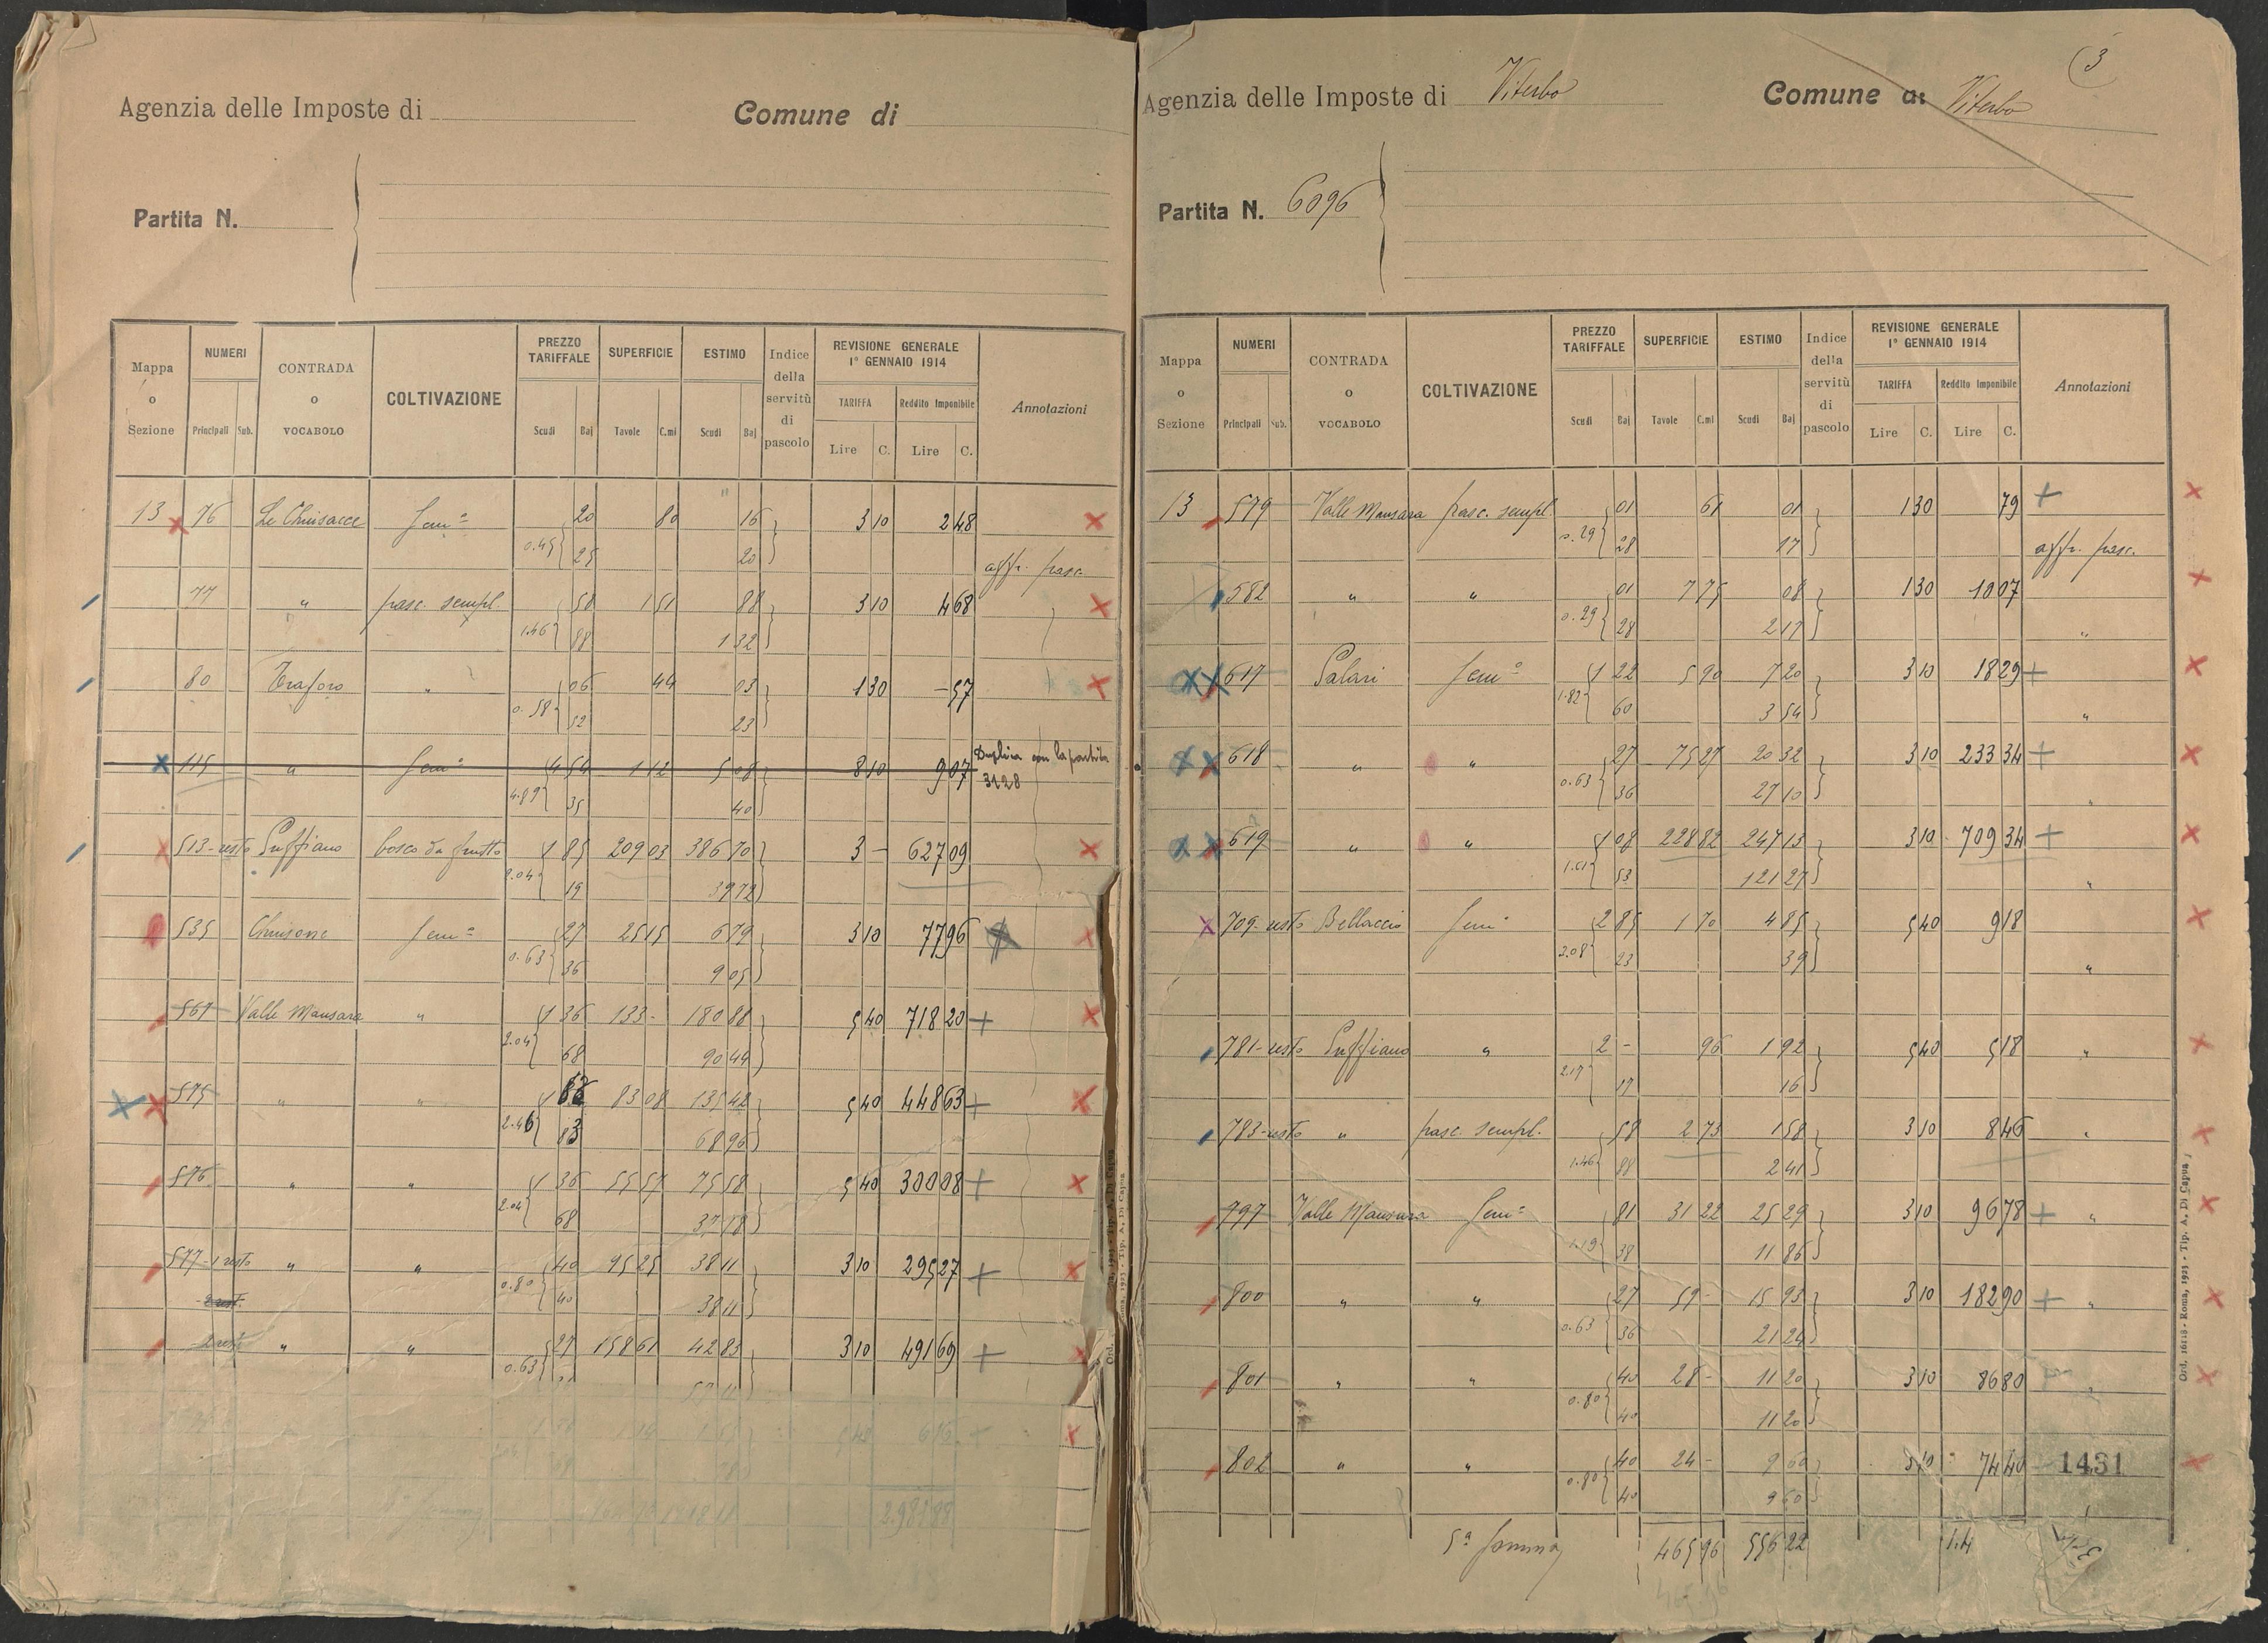 Agenzia delle Imposte di
Comune di
Partita N.
Mappa o Sezione
NUMERI
Principali
Sub.
CONTRADA o VOCABOLO
COLTIVAZIONE
PREZZO TARIFFALE
Scudi
Baj
SUPERFICIE
Tavole
C.mi
ESTIMO
Scudi
Baj
Indice della servitù di pascolo
REVISIONE GENERALE 1° GENNAIO 1914
TARIFFA
Lire
C.
Reddito Imponibile
Lire
C.
Annotazioni
13 76 Semº 20 80 16 3 10 2 48
0.45 25 20
affr. pasc.
77 " pasc. sempl. 58 1 51 88 3 10 4 68
1.46 88 1 32
80 Traforo " 06 44 03 1 30 - 57
0.58 52 23
115 " Semº 4 54 1 12 5 08 8 10 9 07 Duplica con la partita
3128
4.89 35 40
513-resto Puffiano bosco da frutto 1 85 209 03 386 70 3 - 627 09
2.04 19 39 72
535 Semº 27 25 15 6 79 3 10 77 96
0.63 36 9 05
567 Valle Mansara " 1 36 133 - 180 88 5 40 718 20
2.04 68 90 44
575 " " 1 63 83 08 135 42 5 40 448 63
2.46 83 68 96
576 " " 1 36 55 57 75 58 5 40 300 08
2.04 68 37 78
577-1 resto " " 40 95 25 38 11 3 10 295 27
0.80 40 38 11
2 rest " " 27 158 61 42 83 3 10 491 69
0.63
Agenzia delle Imposte di Viterbo
Comune di Viterbo
3
Partita N. 6096
Mappa o Sezione
NUMERI
Principali
Sub.
CONTRADA o VOCABOLO
COLTIVAZIONE
PREZZO TARIFFALE
Scudi
Baj
SUPERFICIE
Tavole
C.mi
ESTIMO
Scudi
Baj
Indice della servitù di pascolo
REVISIONE GENERALE 1° GENNAIO 1914
TARIFFA
Lire
C.
Reddito Imponibile
Lire
C.
Annotazioni
13 579 Valle Mansara pasc. sempl. 01 61 01 1 30 79
0.29 28 17 affr. pasc.
582 " " 01 7 75 08 1 30 10 07
0.29 28 2 17 "
617 Palari Semº 1 22 5 90 7 20 3 10 18 29
1.82 60 3 54 "
618 " " 27 75 27 20 32 3 10 233 34
0.63 36 27 10 "
619 " " 1 08 228 82 247 13 3 10 709 34
1.61 53 121 27 "
709-resto Bellaccio Semº 2 85 1 70 4 85 5 40 9 18
3.08 23 39 "
781-resto Puffiano " 2 - 96 1 92 5 40 5 18 "
2.17 17 16
783-resto " pasc. sempl. 58 2 73 1 58 3 10 8 46 "
1.46 88 2 41
797 Valle Mansara Semº 81 31 22 25 29 3 10 96 78 "
1.19 38 11 86
800 " " 27 59 - 15 93 3 10 182 90 "
0.63 36 21 24
801 " " 40 28 - 11 20 3 10 86 80 "
0.80 40 11 20
802 " " 40 24 - 9 60 3 10 74 40 1431
0.80 40 9 60
5ª Somma 465 96 556 22
Ord. 16118 - Roma, 1923 - Tip. A. Di Capua